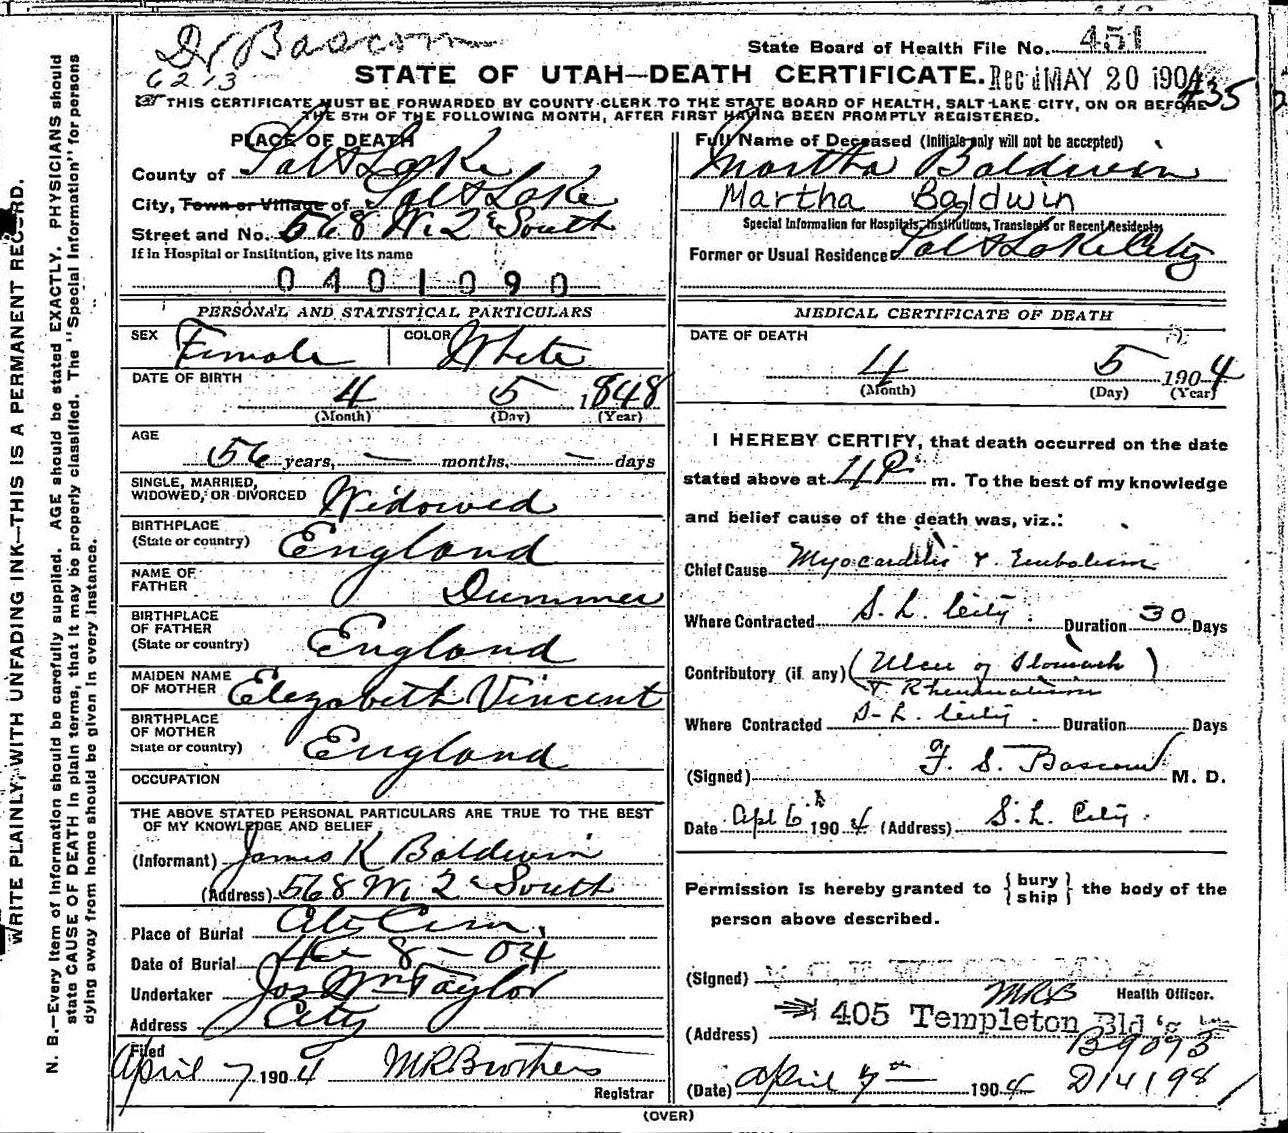 Dr Bascom
6213
State Board of Health File No. 451
STATE OF UTAH—DEATH CERTIFICATE. Rec'd MAY 20 1904
435
THIS CERTIFICATE MUST BE FORWARDED BY COUNTY CLERK TO THE STATE BOARD OF HEALTH, SALT LAKE CITY, ON OR BEFORE
THE 5TH OF THE FOLLOWING MONTH, AFTER FIRST HAVING BEEN PROMPTLY REGISTERED.
WRITE PLAINLY, WITH UNFADING INK—THIS IS A PERMANENT RECORD.
N. B.—Every item of information should be carefully supplied. AGE should be stated EXACTLY. PHYSICIANS should
state CAUSE OF DEATH in plain terms, that it may be properly classified. The "Special Information" for persons
dying away from home should be given in every instance.
PLACE OF DEATH
County of Salt Lake
City, Town or Village of Salt Lake
Street and No. 568 W. 2d South
If in Hospital or Institution, give its name
0401090
PERSONAL AND STATISTICAL PARTICULARS
SEX Female COLOR White
DATE OF BIRTH
4 5 1848
(Month) (Day) (Year)
AGE
56 years, — months, — days
SINGLE, MARRIED,
WIDOWED, OR DIVORCED Widowed
BIRTHPLACE
(State or country) England
NAME OF
FATHER Dummer
BIRTHPLACE
OF FATHER
(State or country) England
MAIDEN NAME
OF MOTHER Elezabeth Vincent
BIRTHPLACE
OF MOTHER
State or country) England
OCCUPATION
THE ABOVE STATED PERSONAL PARTICULARS ARE TRUE TO THE BEST
OF MY KNOWLEDGE AND BELIEF
(Informant) James K Baldwin
(Address) 568 W. 2d South
Place of Burial Cty Cem.
Date of Burial 4 - 8 - 04
Undertaker Jos Wm Taylor
Address City
Filed
April 7 1904 MRBrothers
Registrar
Full Name of Deceased (Initials only will not be accepted)
Martha Baldwin
Martha Baldwin
Special Information for Hospitals, Institutions, Transients or Recent Residents,
Former or Usual Residence Salt Lake City
MEDICAL CERTIFICATE OF DEATH
DATE OF DEATH
4 5 1904
(Month) (Day) (Year)
I HEREBY CERTIFY, that death occurred on the date
stated above at 4 P. m. To the best of my knowledge
and belief cause of the death was, viz.:
Chief Cause Myocarditis & Embolism
Where Contracted S. L. City. Duration 30 Days
Contributory (if any) (Ulcer of Stomach)
& Rheumatism
Where Contracted S. L. City. Duration Days
(Signed) F. S. Bascom M. D.
Date Apl 6th 1904 (Address) S. L. City.
Permission is hereby granted to {bury ship} the body of the
person above described.
(Signed)
MRB Health Officer.
(Address) 405 Templeton Bld'g
B9093
(Date) April 7th 1904 D14198
(OVER)